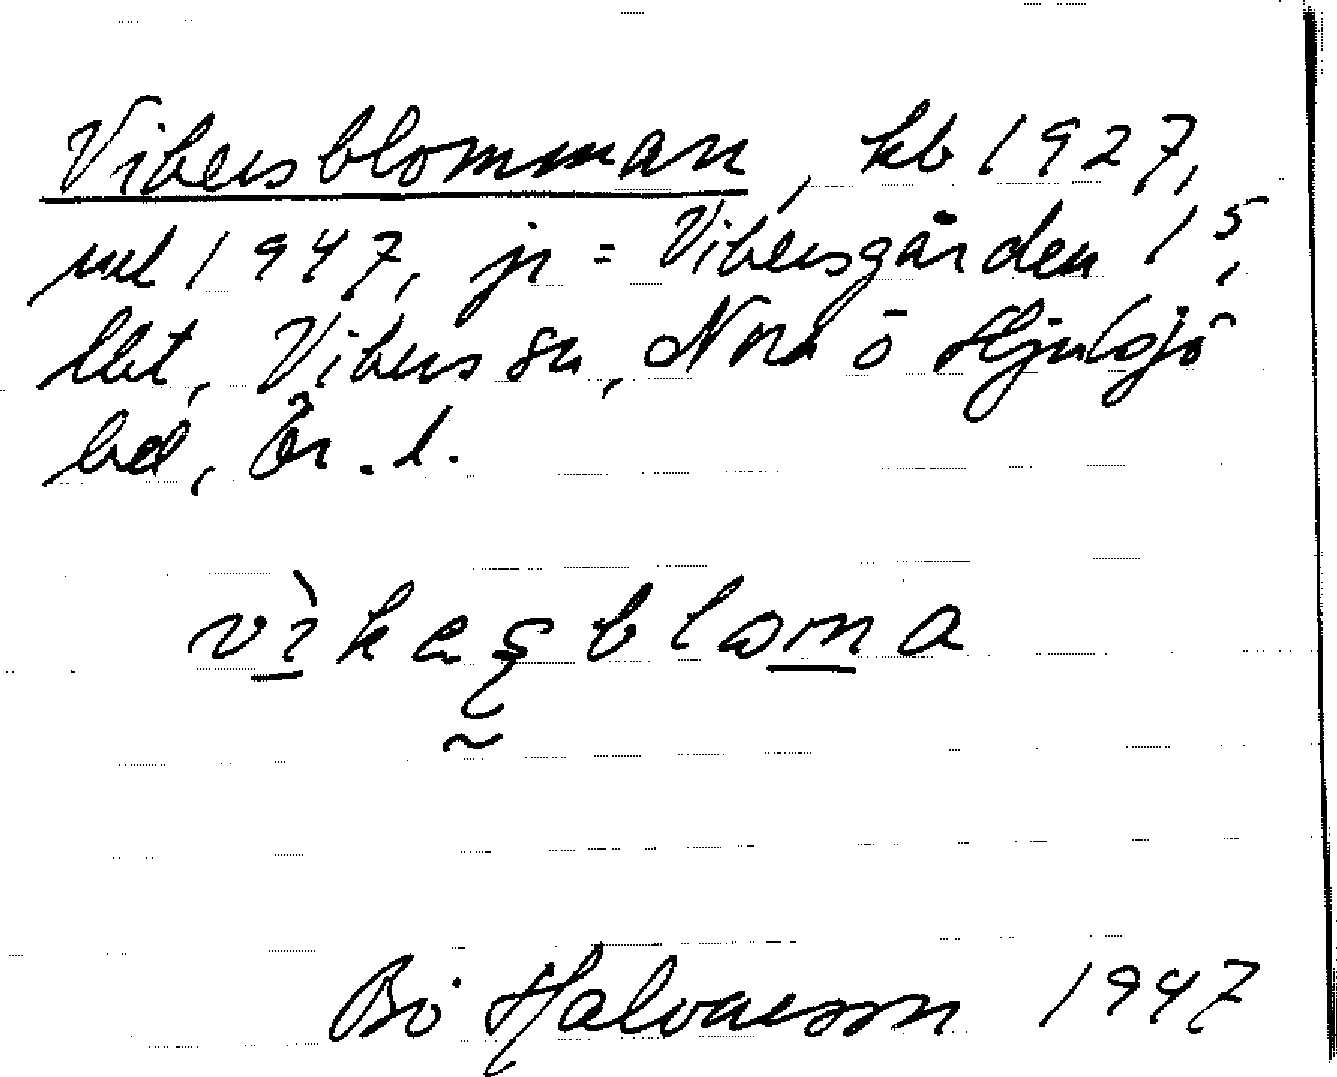 Vikersblomman, kb 1927,
ud 1947, jr = Vikersgården 1⁵,
lht, Vikers sn, Nora o Hjulsjö
bd, Ör. l.
vìkeşbloma
Bo Halvarsson 1947